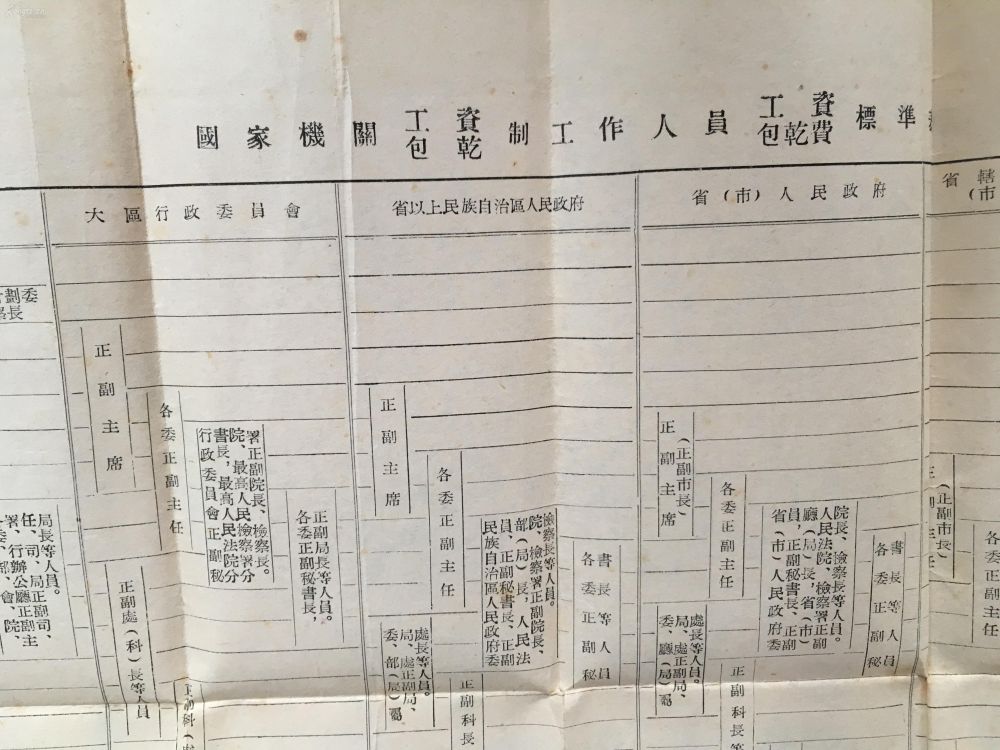 國家機關工資制工作人員工資標準
包乾 包乾費
大區行政委員會
省以上民族自治區人民政府
省(市)人民政府
省轄
(市
劃委
長
正副主席
各委正副主任
行政委員會正副秘
書長，最高人民法院分
院、最高人民檢察署分
署正副院長、檢察長。
各委正副秘書長，
正副局長等人員。
正副處(科)長等人員
委、部、會、院、
署、行、辦公廳正副主
任、司、局正副司、
局長等人員。
正副主席
各委正副主任
民族自治區人民政府委
員、正副秘書長、正副
部(局)長，人民法
院、檢察署正副院長、
檢察長等人員。
各委正副秘
書長等人員
委、部(局)屬
局、處正副局、
處長等人員。
正副科長
正副主席
(正副市長)
各委正副主任
省(市)人民政府委
員，正副秘書長、正副
廳(局)長，省(市)
人民法院、檢察署正副
院長、檢察長等人員。
各委正副秘
書長等人員
委、廳(局)屬
局、處正副局、
處長等人員。
正副科長等
(正副市長)
各委正副主任